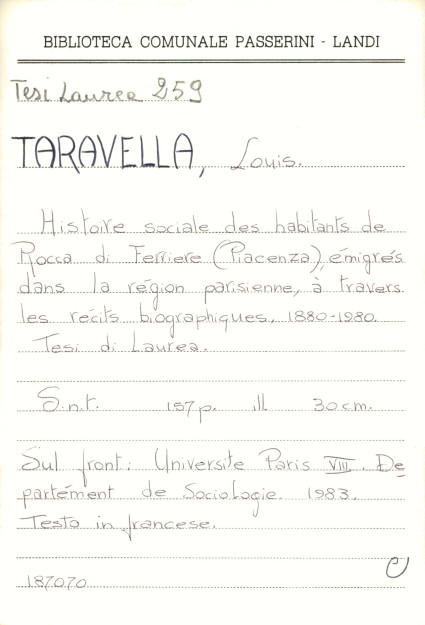 BIBLIOTECA COMUNALE PASSERINI - LANDI
Tesi Laurea 259
TARAVELLA, Louis.
Histoire sociale des habitants de
Rocca di Ferriere (Piacenza), émigrés
dans la région parisienne, à travers
les récits biographiques, 1880-1980.
Tesi di Laurea.
S.n.t. 157 p. ill 30 cm.
Sul front: Universite Paris VIII. De
partément de Sociologie. 1983.
Testo in francese.
187070